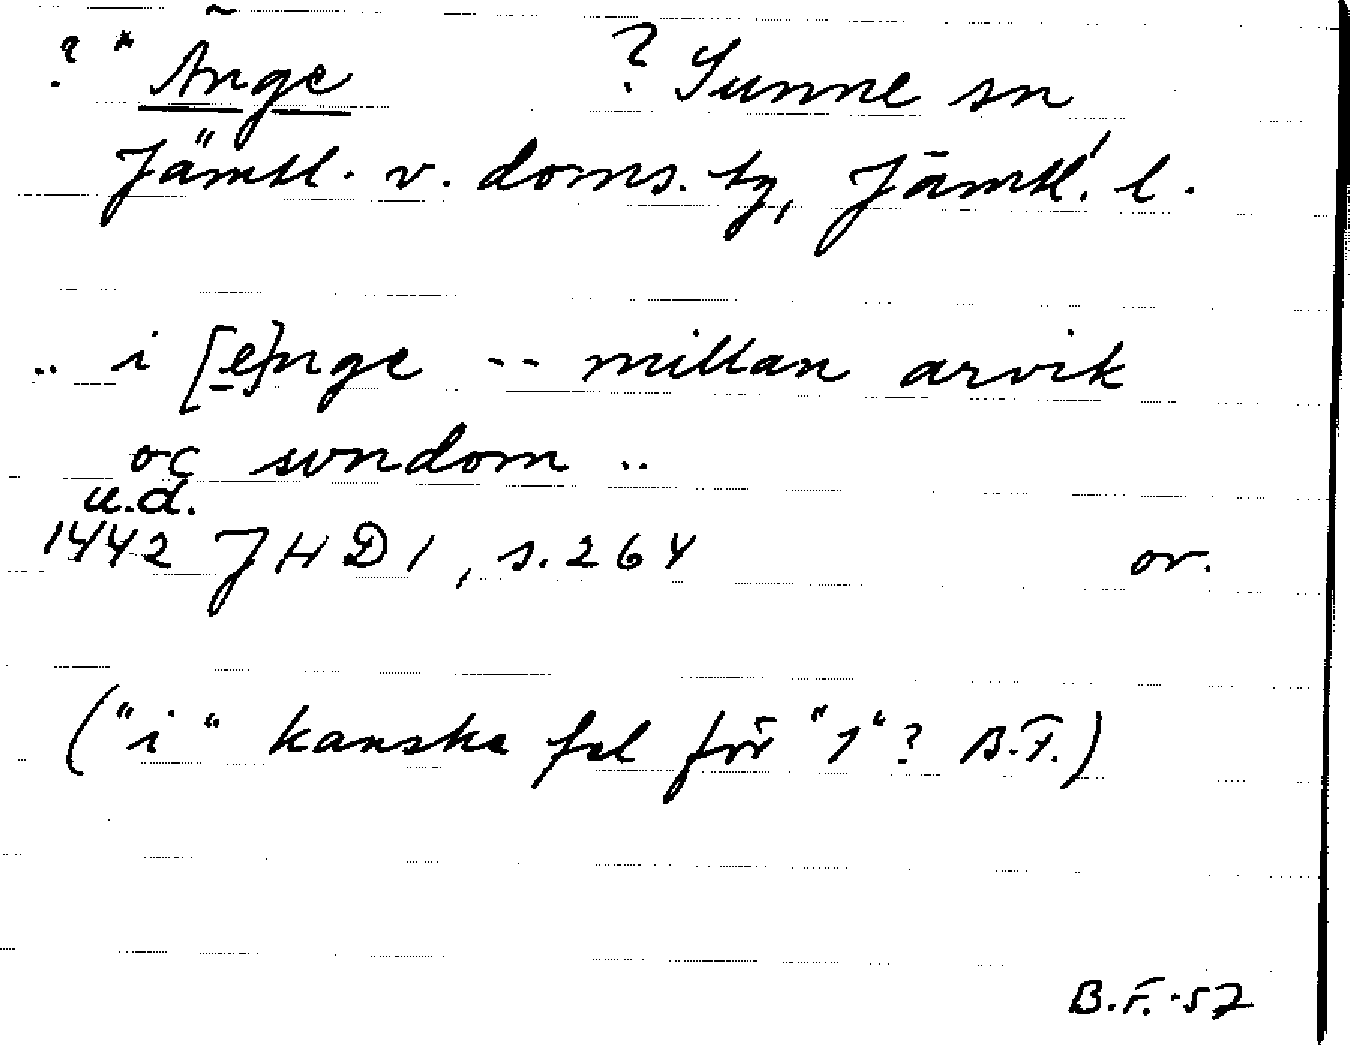 ? * Änge ? Sunne sn
Jämtl. v. doms. tg, Jämtl. l.
.. i [e]nge -- millan arvik
oc svndom ..
u.d.
1442 JHD 1, s. 264 or.
("i" kanske fel för "1"? B.F.)
B.F. -52